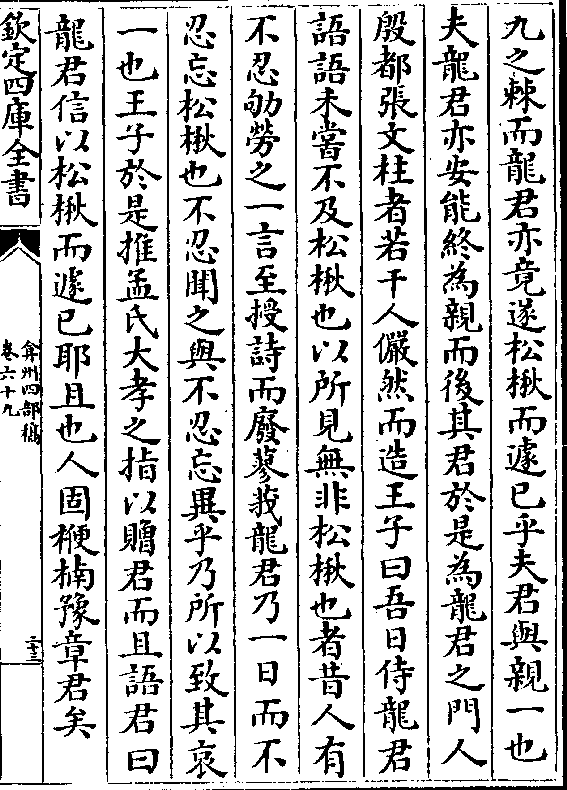 九之棘而龍君亦竟遂松楸而遽已乎夫君與親一也
夫龍君亦安能終為親而後其君於是為龍君之門人
殷都張文柱者若干人儼然而造王子曰吾日侍龍君
語語未嘗不及松楸也以所見無非松楸也者昔人有
不忍劬勞之一言至授詩而廢蓼莪龍君乃一日而不
忍忘松楸也不忍聞之與不忍忘異乎乃所以致其哀
一也王子於是推孟氏大孝之指以贈君而且語君曰
龍君信以松楸而遽已耶且也人固楩楠豫章君矣
欽定四庫全書
弇州四部稿
卷六十九
二十三